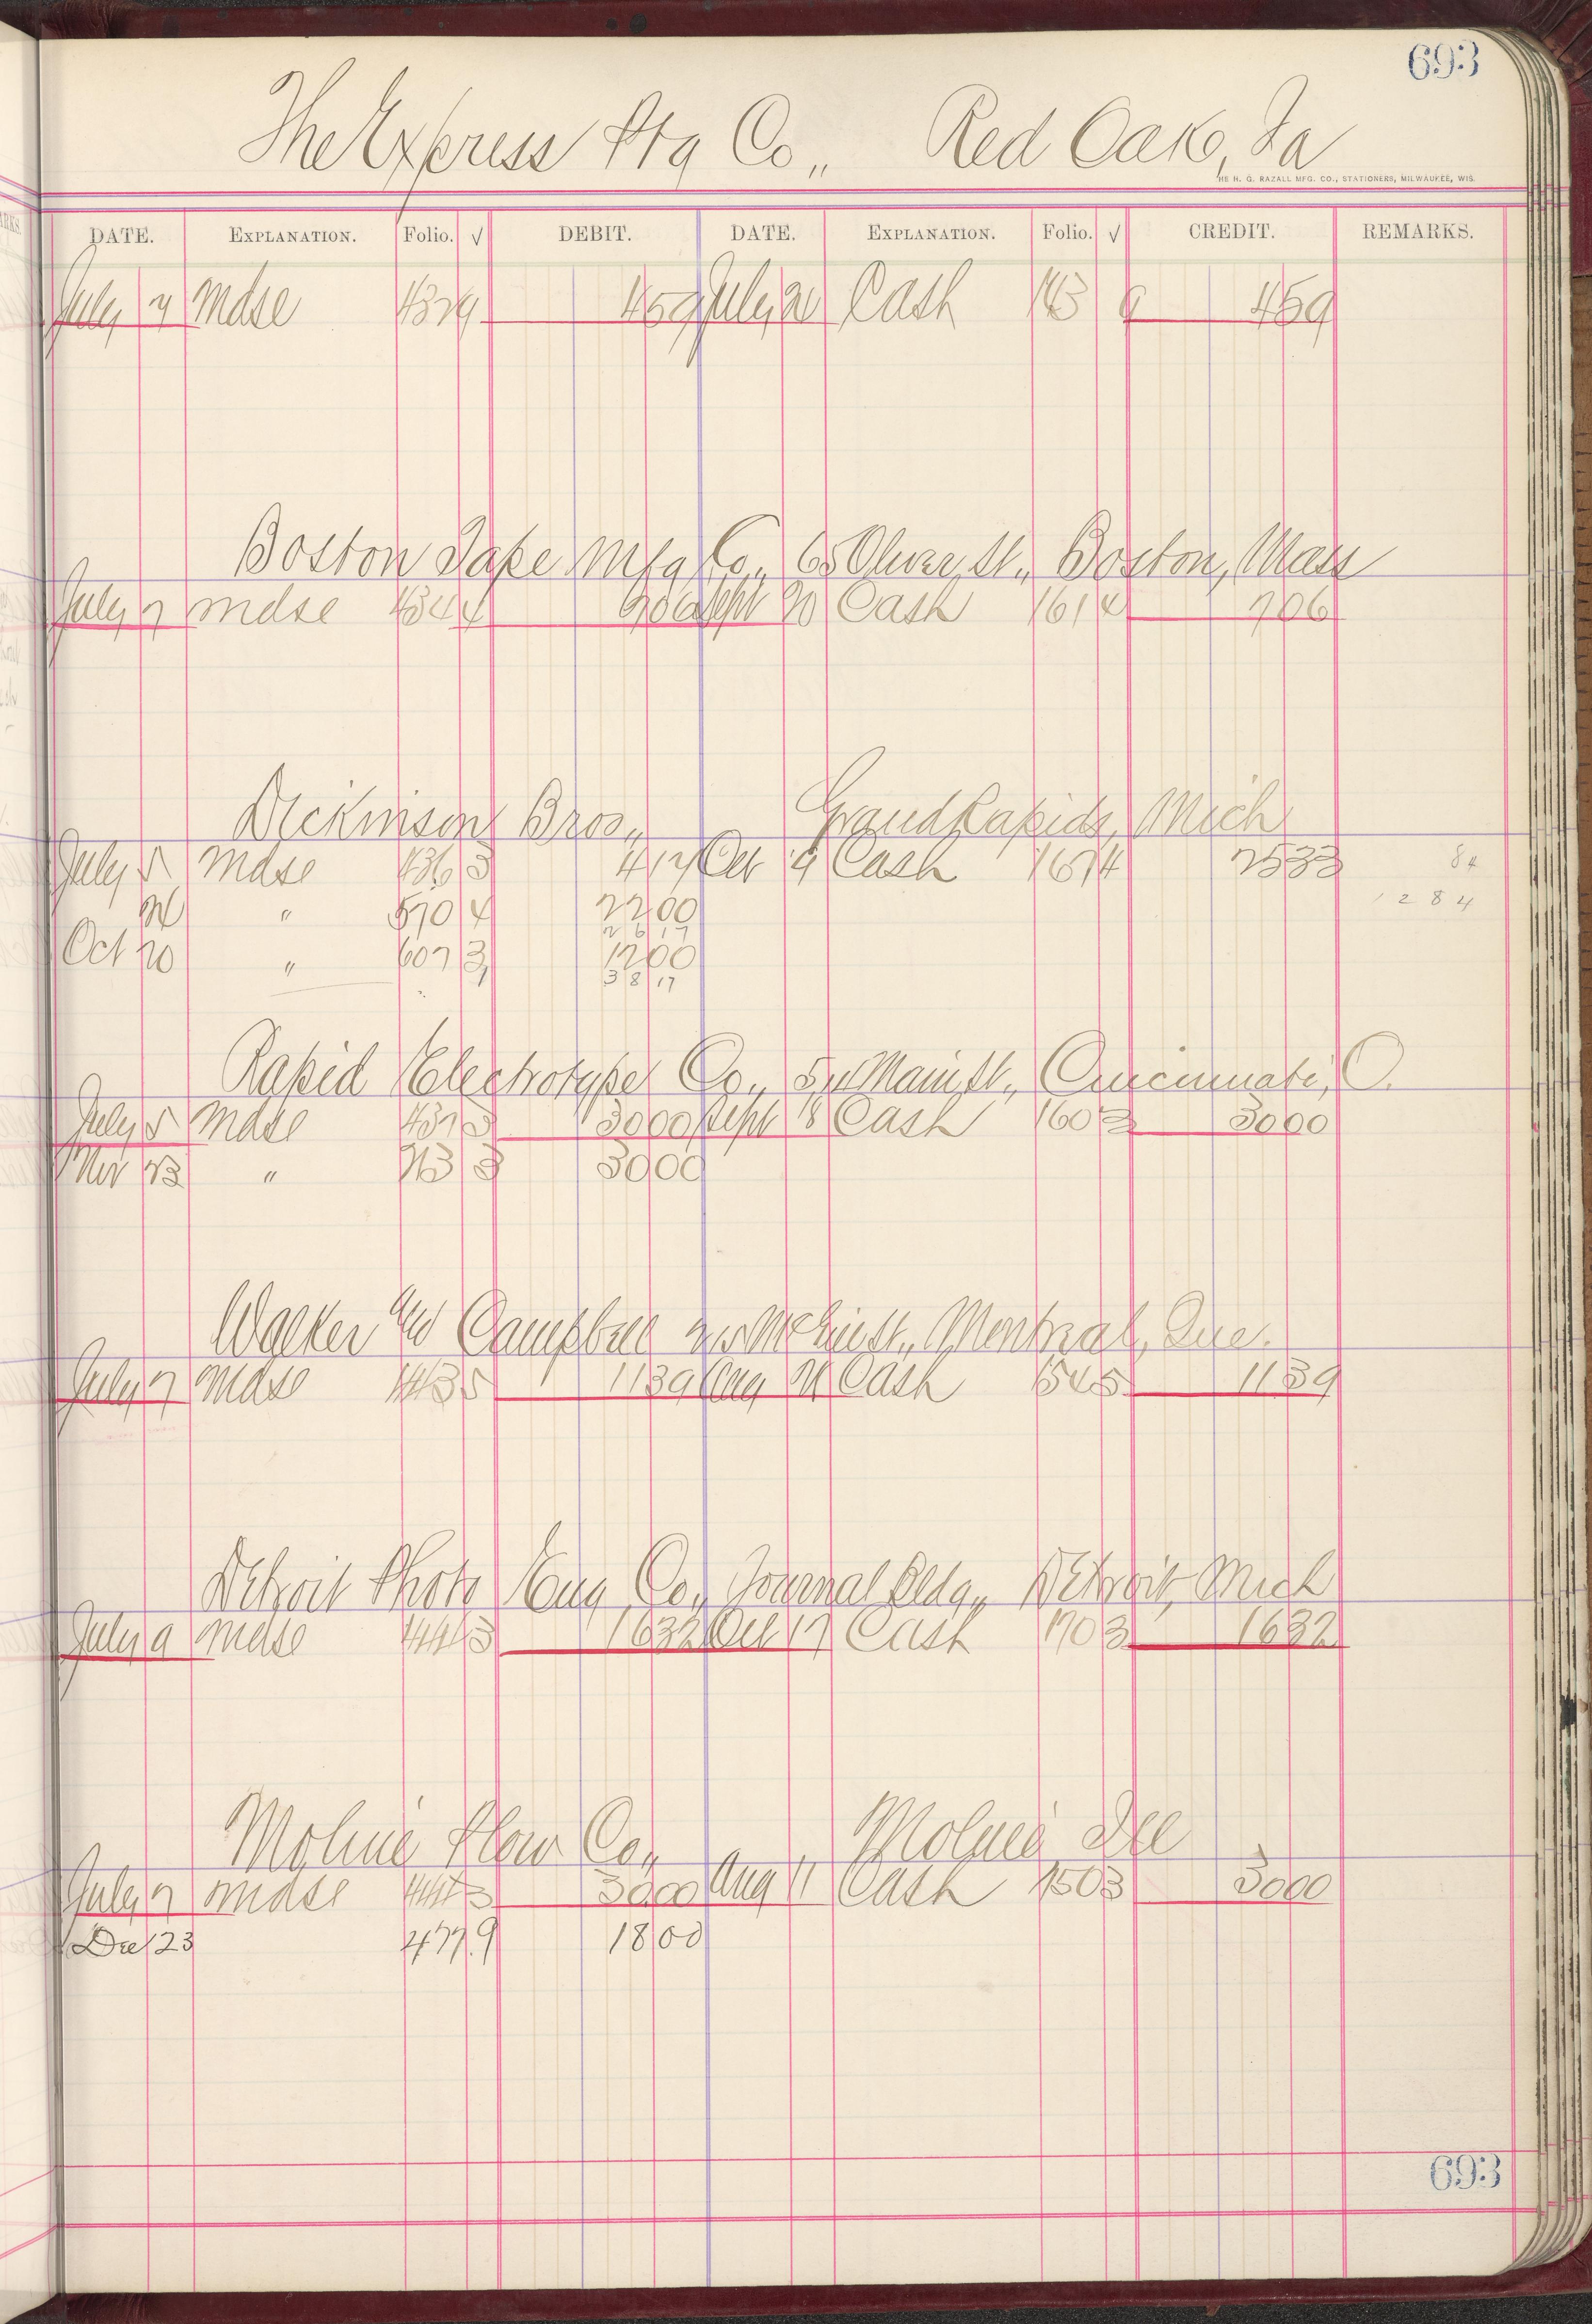 693
The Express Ptg Co., Red Oak, Ia
THE H. G. RAZALL MFG. CO., STATIONERS, MILWAUKEE, WIS.
DATE. EXPLANATION. Folio. √ DEBIT. DATE. EXPLANATION. Folio. √ CREDIT. REMARKS.
July 7 Mdse 437 9 4 59 July 21 Cash 143 9 4 59
Boston Tape Mfg Co., 65 Oliver St., Boston, Mass
July 7 Mdse 434 4 7 06 Sept 20 Cash 161 4 7 06
Dickinson Bros., Grand Rapids, Mich
July 5 Mdse 436 3 4 17 Oct 9 Cash 167 4 25 33 84
" 570 4 22 00 12 84
26 17
Oct 20 " 607 3 12 00
38 17
Rapid Electrotype Co., Main St., Cincinnati, O.
July 5 Mdse 437 3 30 00 Sept 18 Cash 160 3 30 00
Nov 23 " 713 3 30 00
Walker & Campbell St., Montreal, Que.
July 7 Mdse 443 5 11 39 Aug 21 Cash 154 5 11 39
Detroit Photo Eng Co., Journal Bldg., Detroit, Mich
July 9 Mdse 444 3 16 32 Oct 17 Cash 170 3 16 32
Moline Plow Co., Moline, Ill
July 7 Mdse 444 3 30 00 Aug 11 Cash 150 3 30 00
Dec 23 477 9 18 00
693